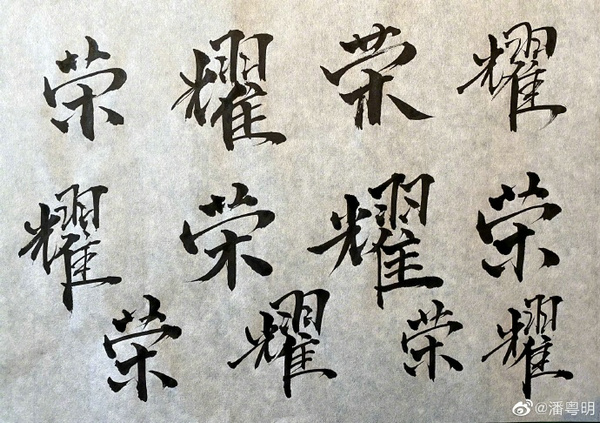 荣 耀 荣 耀
耀 荣 耀 荣
荣 耀 荣 耀
@潘粤明